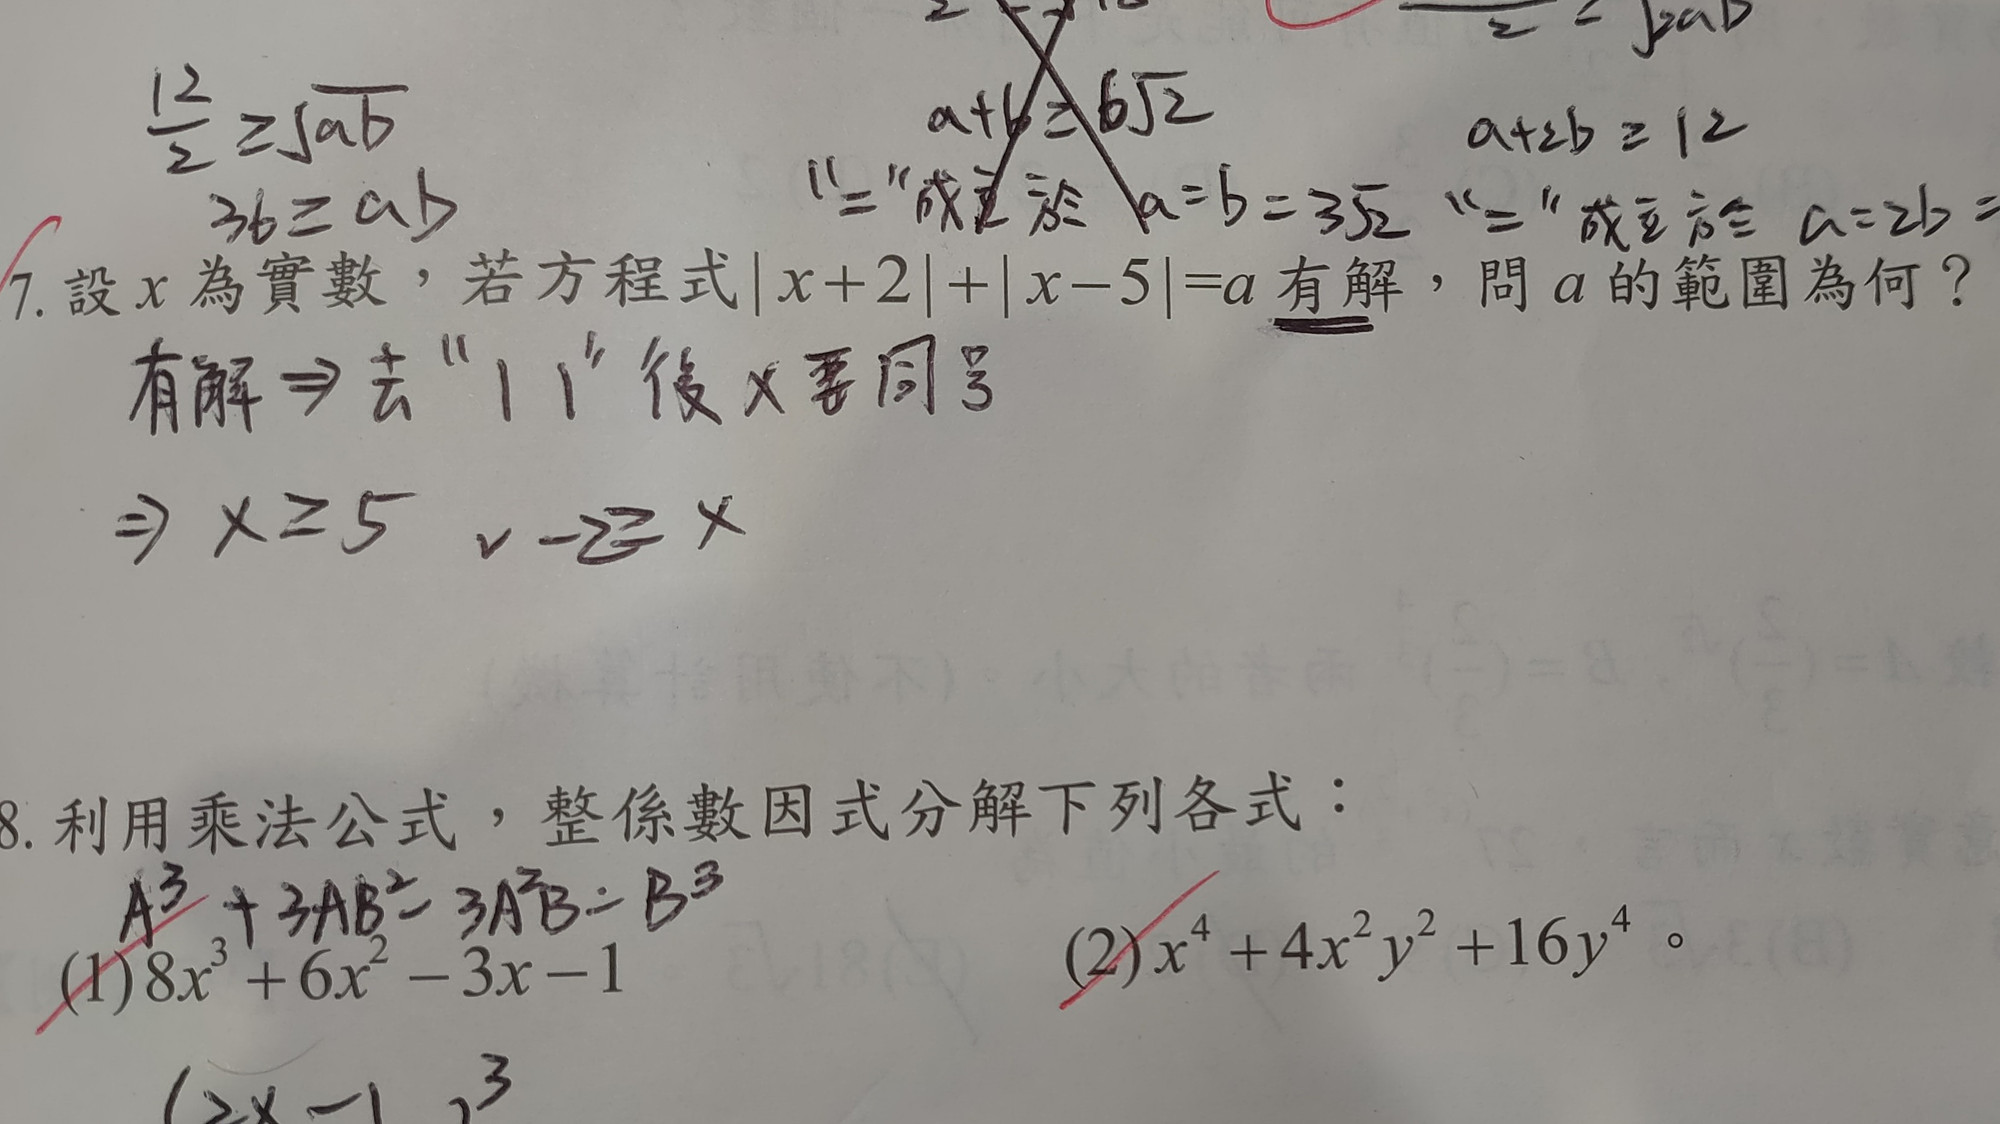 12/2 ≥ √ab
36 ≥ ab
a+b ≥ 6√2
"="成立於 a=b=3√2
2 = √2ab
a+2b ≥ 12
"="成立於 a=2b=
7. 設 x 為實數，若方程式|x+2|+|x−5|=a 有解，問 a 的範圍為何？
有解 ⇒ 去"| |"後 x 要同号
⇒ x ≥ 5 ∨ −2 ≥ x
8. 利用乘法公式，整係數因式分解下列各式：
A³ + 3AB² − 3A²B − B³
(1) 8x³ + 6x² − 3x − 1
(2) x⁴ + 4x²y² + 16y⁴。
(2x − 1)³